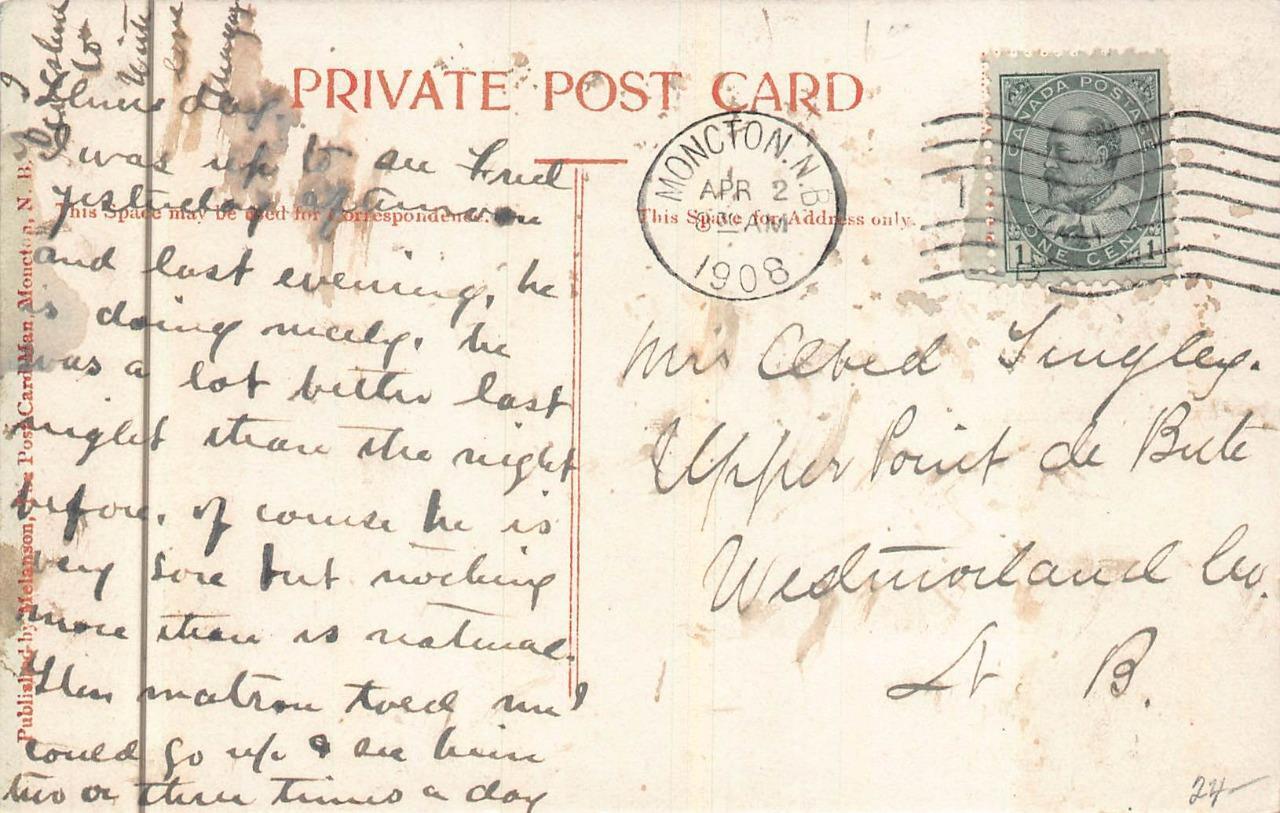 PRIVATE POST CARD
This Space may be used for Correspondence.
This Space for Address only.
Published by Melanson, The Post Card Man Moncton, N. B.
MONCTON. N.B.
APR 2
AM
1908
CANADA POSTAGE
1 ONE CENT 1
day.
I was up to see Fred
yesterday afternoon
and last evening, he
is doing nicely. he
was a lot better last
night than the night
before. of course he is
very sore but nothing
more than is natural.
The matron told me I
could go up & see him
two or three times a day
Mrs Abed Tingley.
Upper Point de Bute
Westmorland Co.
N B.
24